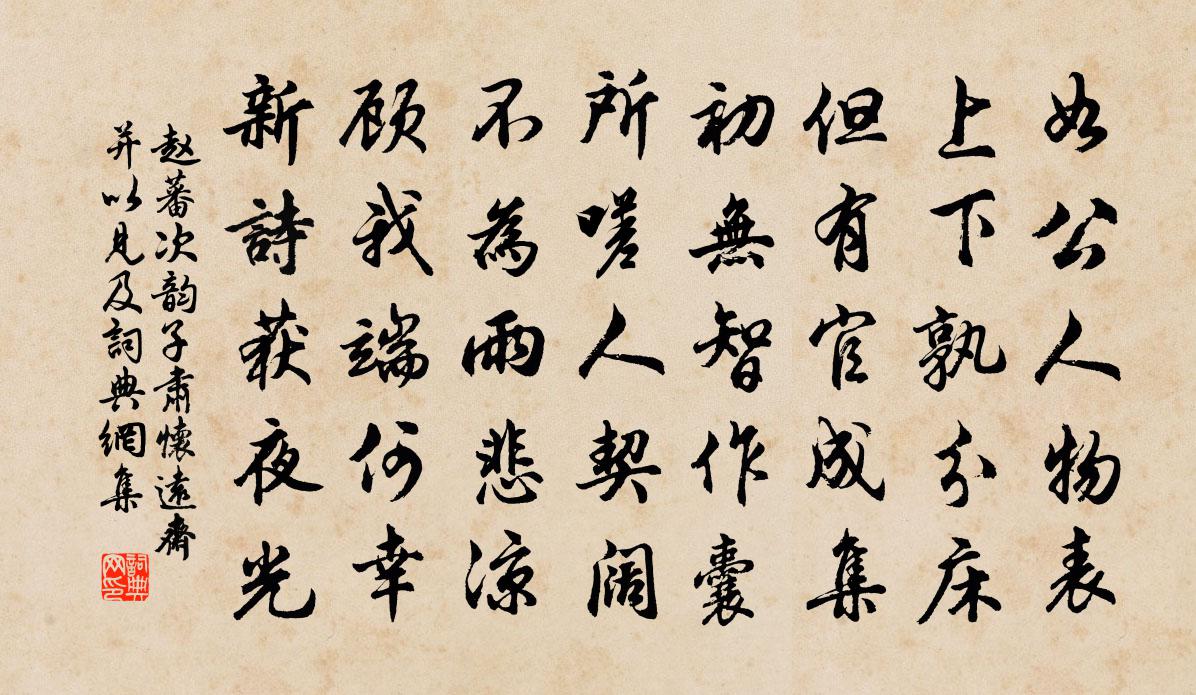 如公人物表
上下孰分床
但有官成集
初無智作囊
所嗟人契闊
不為雨悲涼
顾我端何幸
新詩获夜光
赵蕃次韵子肅懷遠齋
并以見及詞典網集
詞典网印